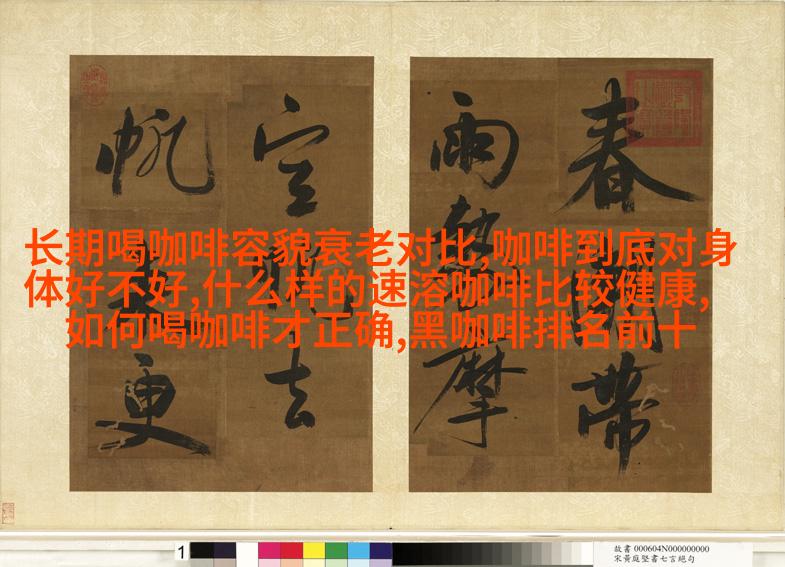 长期喝咖啡容貌衰老对比,咖啡到底对身
体好不好,什么样的速溶咖啡比较健康,
如何喝咖啡才正确,黑咖啡排名前十
春
帶
雨
摩
空
去
帆
更
1
故書 000604N000000000
宋黃庭堅書七言絕句